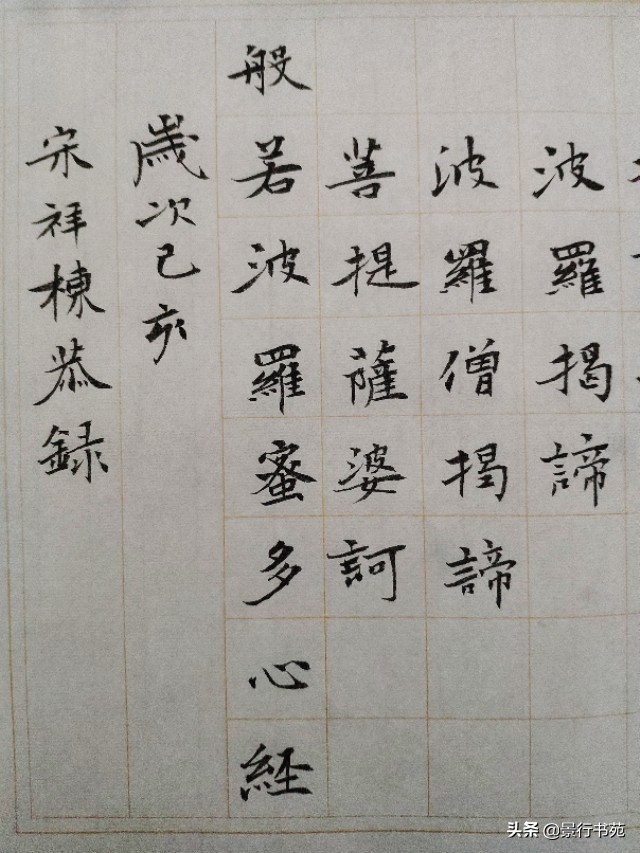 波羅揭諦
波羅僧揭諦
菩提薩婆訶
般若波羅蜜多心経
歲次己亥
宋祥棟恭録
头条 @景行书苑